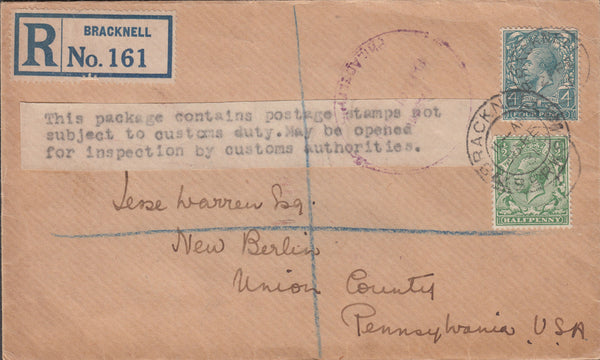 R
BRACKNELL
No. 161
This package contains postage stamps not
subject to customs duty.May be opened
for inspection by customs authorities.
BRACKNELL
HALFPENNY
Jesse Warren Esq.
New Berlin
Union County
Pennsylvania U.S.A.